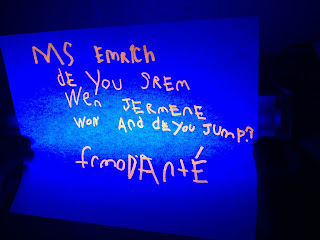 MS EmRICh
dE You SREM
WEn JERMENE
WON AnD dE YOU JUMP?
frmoDAntÉ